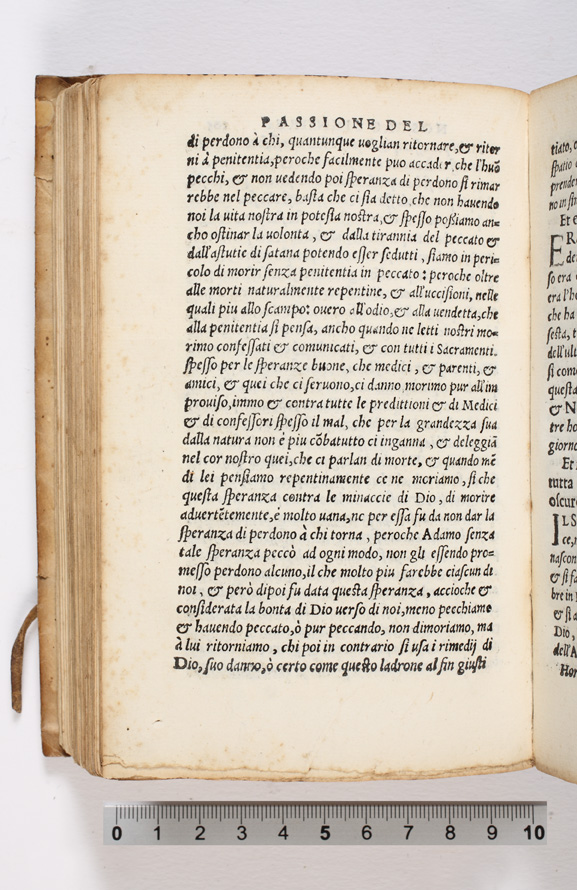 PASSIONE DEL
di perdono à chi, quantunque uoglian ritornare, & ritor
ni à penitentia, peroche facilmente puo accader, che l'huō
pecchi, & non uedendo poi speranza di perdono si rimar
rebbe nel peccare, basta che ci sia detto, che non hauendo
noi la uita nostra in potesta nostra, & spesso possiamo an=
cho ostinar la uolonta, & dalla tirannia del peccato &
dall'astutie di satana potendo esser sedutti, siamo in peri=
colo di morir senza penitentia in peccato: peroche oltre
alle morti naturalmente repentine, & all'uccisioni, nelle
quali piu allo scampo: ouero all'odio, & alla uendetta, che
alla penitentia si pensa, ancho quando ne letti nostri mo=
rimo confessati & comunicati, & con tutti i Sacramenti.
spesso per le speranze buone, che medici, & parenti, &
amici, & quei che ci seruono, ci danno, morimo pur all'im
prouiso, immo & contra tutte le predittioni & di Medici
& di confessori spesso il mal, che per la grandezza sua
dalla natura non è piu cōbatutto ci inganna, & deleggiā
nel cor nostro quei, che ci parlan di morte, & quando mē
di lei pensiamo repentinamente ce ne moriamo, si che
questa speranza contra le minaccie di Dio, di morire
aduertētemente, è molto uana, ne per essa fu da non dar la
speranza di perdono à chi torna, peroche Adamo senza
tale speranza peccò ad ogni modo, non gli essendo pro=
messo perdono alcuno, il che molto piu farebbe ciascun di
noi, & però dipoi fu data questa speranza, accioche &
considerata la bonta di Dio uerso di noi, meno pecchiamo
& hauendo peccato, ò pur peccando, non dimoriamo, ma
à lui ritorniamo, chi poi in contrario si usa i rimedij di
Dio, suo danno, ò certo come questo ladrone al fin giusti
tiato,
spatio
prender
no in sin
Et
ER
de
so era
era l'h
che ha
festa, t
dell'ult
si come
questa
& N
tre ho
giorno
Et
tutta
oscur
ILS
ce,
nascon
& si fa
bre in
& si a
Dio,
dell'A
Hor
0 1 2 3 4 5 6 7 8 9 10